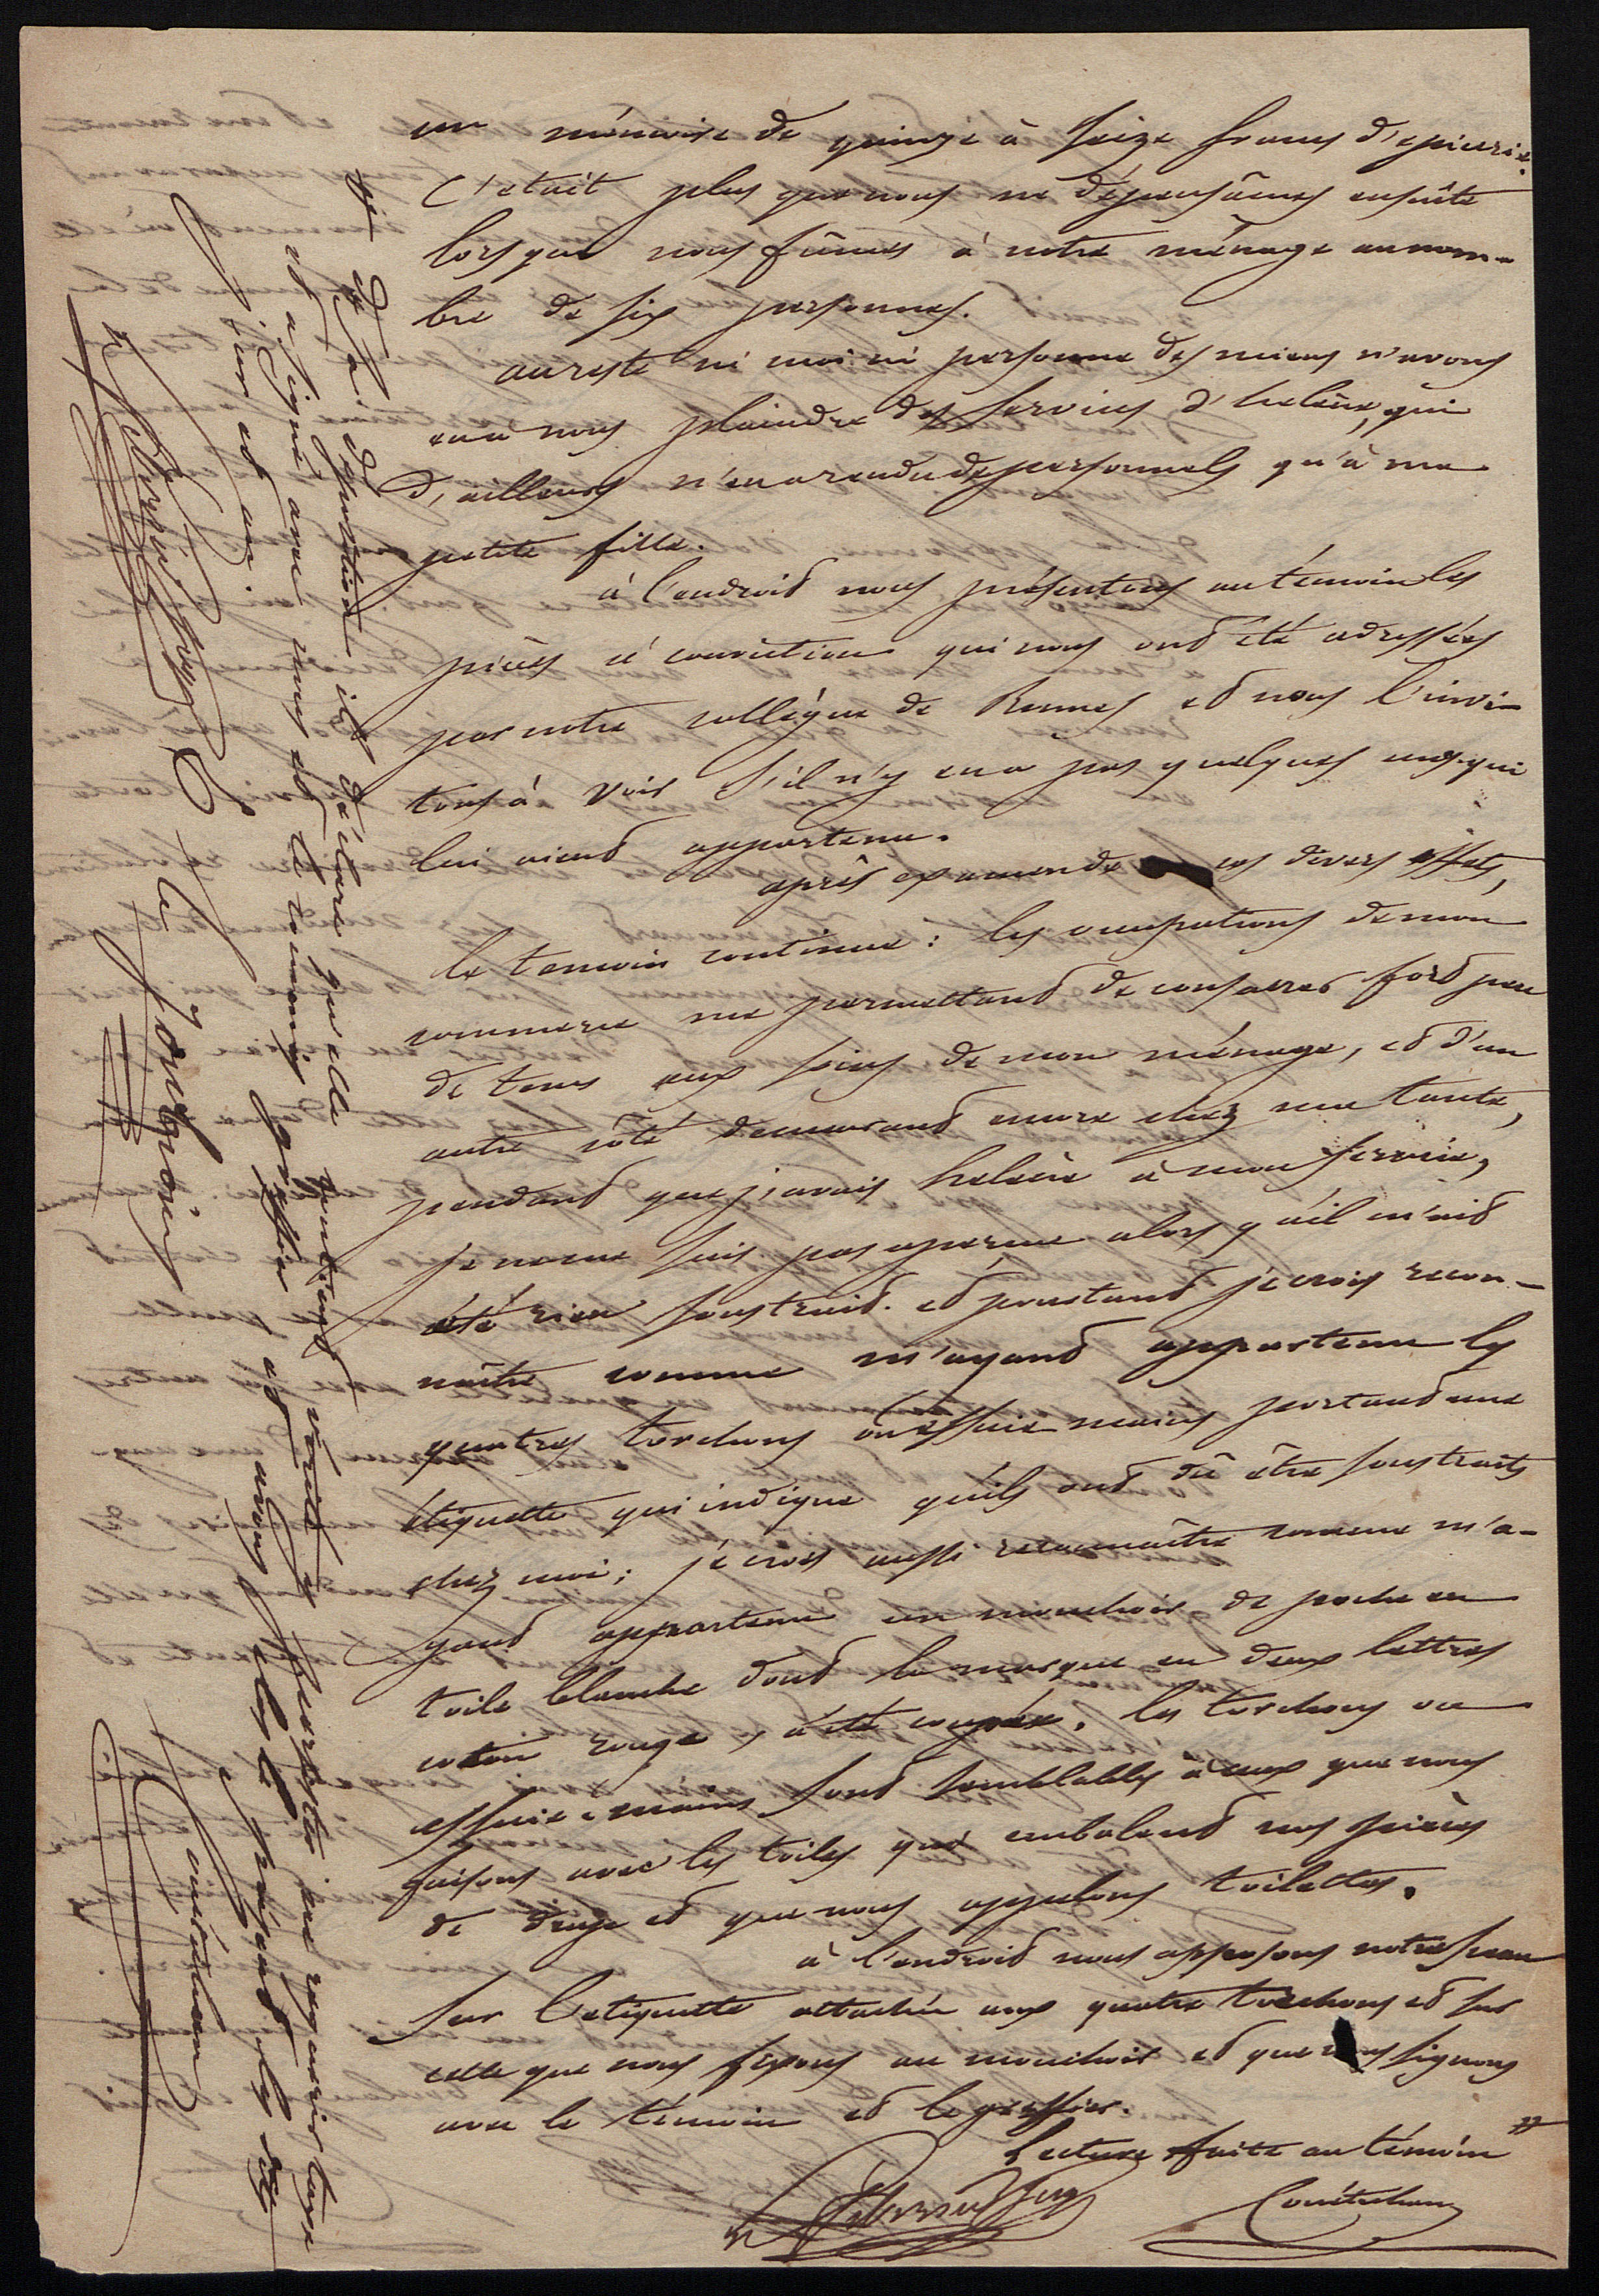 un mémoire de quinze à seize francs d'epicerie.
C'etait plus que nous ne dépensâmes ensuite
lorsque nous fûmes à notre ménage au nom-
bre de six personnes.
au reste ni moi ni personne des miens n'avons
eu à nous plaindre des services d'helène, qui
d'ailleurs n'en a rendu de personnels qu'à ma
petite fille.
à l'endroit nous présentons au témoin les
pièces à conviction qui nous ont été adressées
par notre collègue de Rennes et nous l'invi-
tons à voir s'il n'y en a pas quelques unes qui
lui aient appartenu.
après examen de ces divers effets,
le temoin continue : les occupations de mon
commerce me permettant de consacrer fort peu
de tems aux soins de mon ménage, et d'un
autre côté demeurant encore chez ma tante,
pendant que j'avais helène à mon service,
je ne me suis pas aperçue alors qu'il m'ait
été rien soustrait. et pourtant je crois recon-
naître comme m'ayant appartenu les
quatres torchons ou essuie mains portant une
étiquette qui indique qu'ils ont dû être soustraits
chez moi ; je crois aussi reconnaître comme m'a-
yant appartenu un mouchoir de poche en
toile blanche dont la marque en deux lettres
coton rouge, a été coupée. les torchons ou
essuie-mains sont semblables à ceux que nous
faisons avec les toiles qui embalent nos pièces
de draps et que nous appelons toilettes.
à l'endroit nous apposons notre sceau
sur l'etiquette attachée aux quatre torchons et sur
celle que nous fixons au mouchoir et que nous signons
avec le témoin et le greffier.
Lecture faite au témoin
de sa déposition il déclare qu'elle contient vérité, y persister, ne requérir taxe
et a signé avec nous et le commis greffier
jour et an.